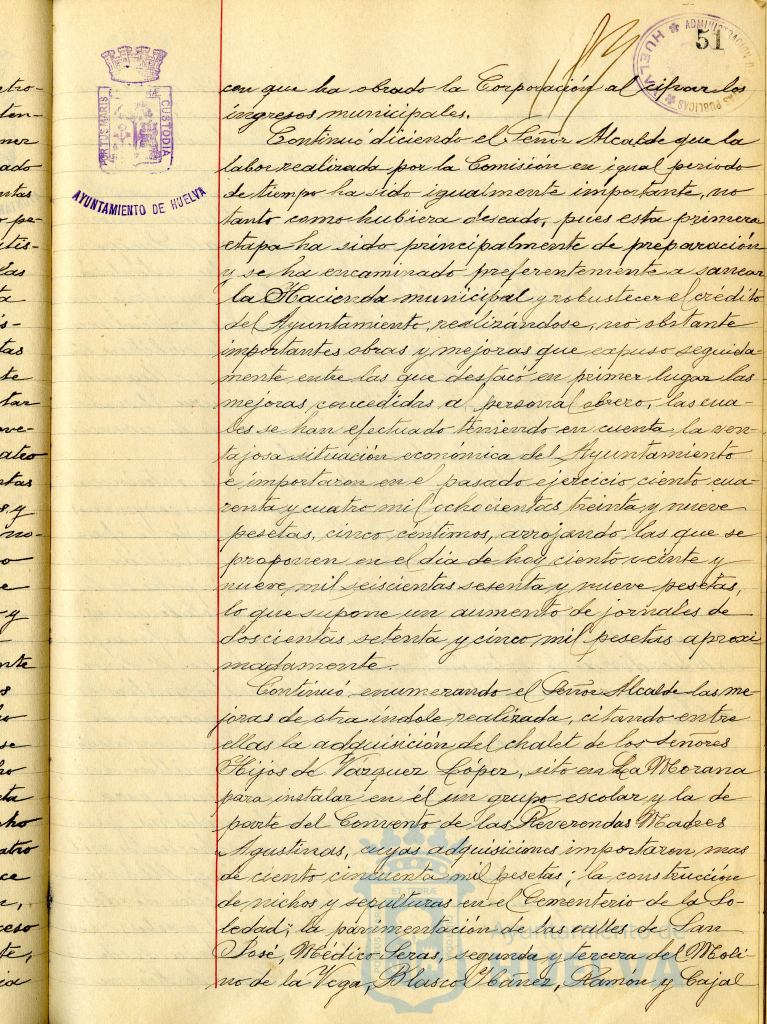 51
ADMINISTRACION D
AS PUBLICAS
HUELVA
PORTUS MARIS
CUSTODIA
AYUNTAMIENTO DE HUELVA
con que ha obrado la Corporación al cifrar los
ingresos municipales.
Continuó diciendo el Señor Alcalde que la
labor realizada por la Comisión en igual periodo
de tiempo ha sido igualmente importante, no
tanto como hubiera deseado, pues esta primera
etapa ha sido principalmente de preparación
y se ha encaminado preferentemente a sanear
la Hacienda municipal y robustecer el crédito
del Ayuntamiento, realizándose, no obstante
importantes obras y mejoras que expuso seguida-
mente entre las que destacó en primer lugar las
mejoras concedidas al personal obrero, las cua-
les se han efectuado teniendo en cuenta la ven-
tajosa situación económica del Ayuntamiento
e importaron en el pasado ejercicio ciento cua-
renta y cuatro mil ochocientas treinta y nueve
pesetas, cinco céntimos, arrojando las que se
proponen en el dia de hoy ciento veinte y
nueve mil seiscientas sesenta y nueve pesetas,
lo que supone un aumento de jornales de
doscientas setenta y cinco mil pesetas aproxi
madamente.
Continuó enumerando el Señor Alcalde las me
joras de otra índole realizada, citando entre
ellas la adquisición del chalet de los señores
Hijos de Vázquez López, sito en La Morana
para instalar en él un grupo escolar y la de
parte del Convento de las Reverendas Madres
Agustinas, cuyas adquisiciones importaron mas
de ciento cincuenta mil pesetas; la construcción
de nichos y sepulturas en el Cementerio de la So-
ledad; la pavimentación de las calles de San
José, Médico Seras, segunda y tercera del Moli-
no de la Vega, Blasco Ibáñez, Ramón y Cajal
Ayuntamiento de
HUELVA